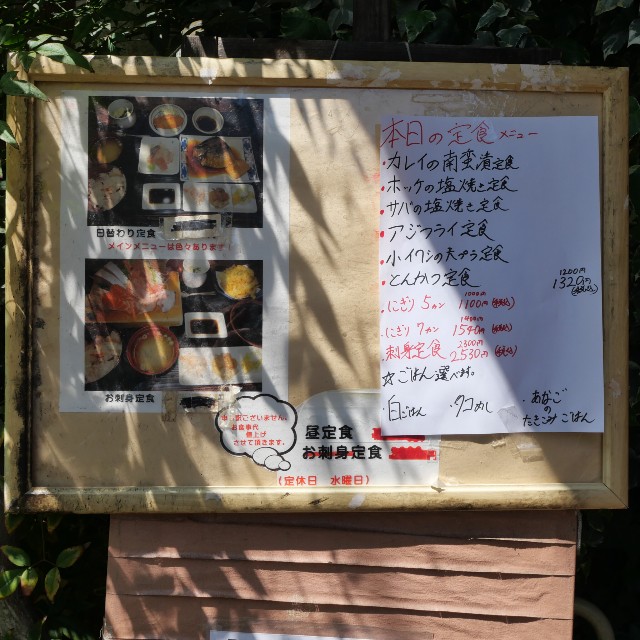 日替わり定食
メインメニューは色々あります!
お刺身定食
申し訳ございません。
お食事代
値上げ
させて頂きます。
昼定食
お刺身定食
(定休日 水曜日)
本日の定食 メニュー
・カレイの南蛮漬定食
・ホッケの塩焼き定食
・サバの塩焼き定食
・アジフライ定食
・小イワシの天ぷら定食
・とんかつ定食
1200円
1320円
(税込)
・にぎり 5カン 1000円 1100円 (税込)
・にぎり 7カン 1400円 1540円 (税込)
刺身定食 2300円 2530円 (税込)
☆ごはん選べます。
・白ごはん ・タコめし ・あなご
の
たきこみごはん